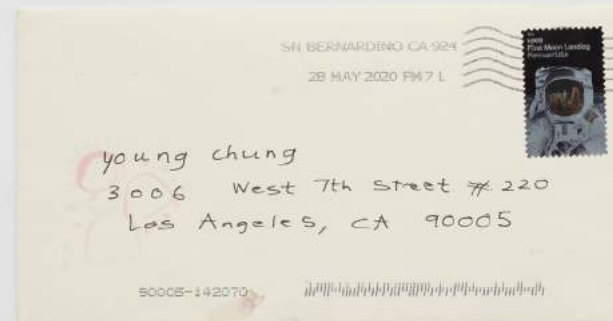 SN BERNARDINO CA 924
28 MAY 2020 PM 7 L
1969
First Moon Landing
Forever USA
young chung
3006 West 7th Street # 220
Los Angeles, CA 90005
90005-142070